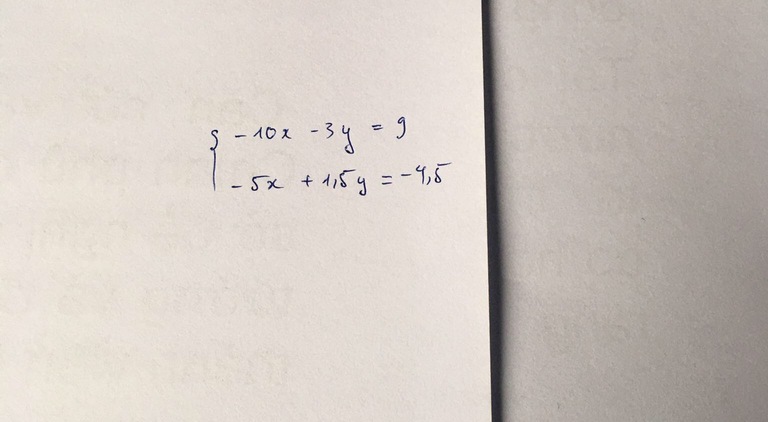 { -10x -3y = 9
-5x +1,5y = -4,5